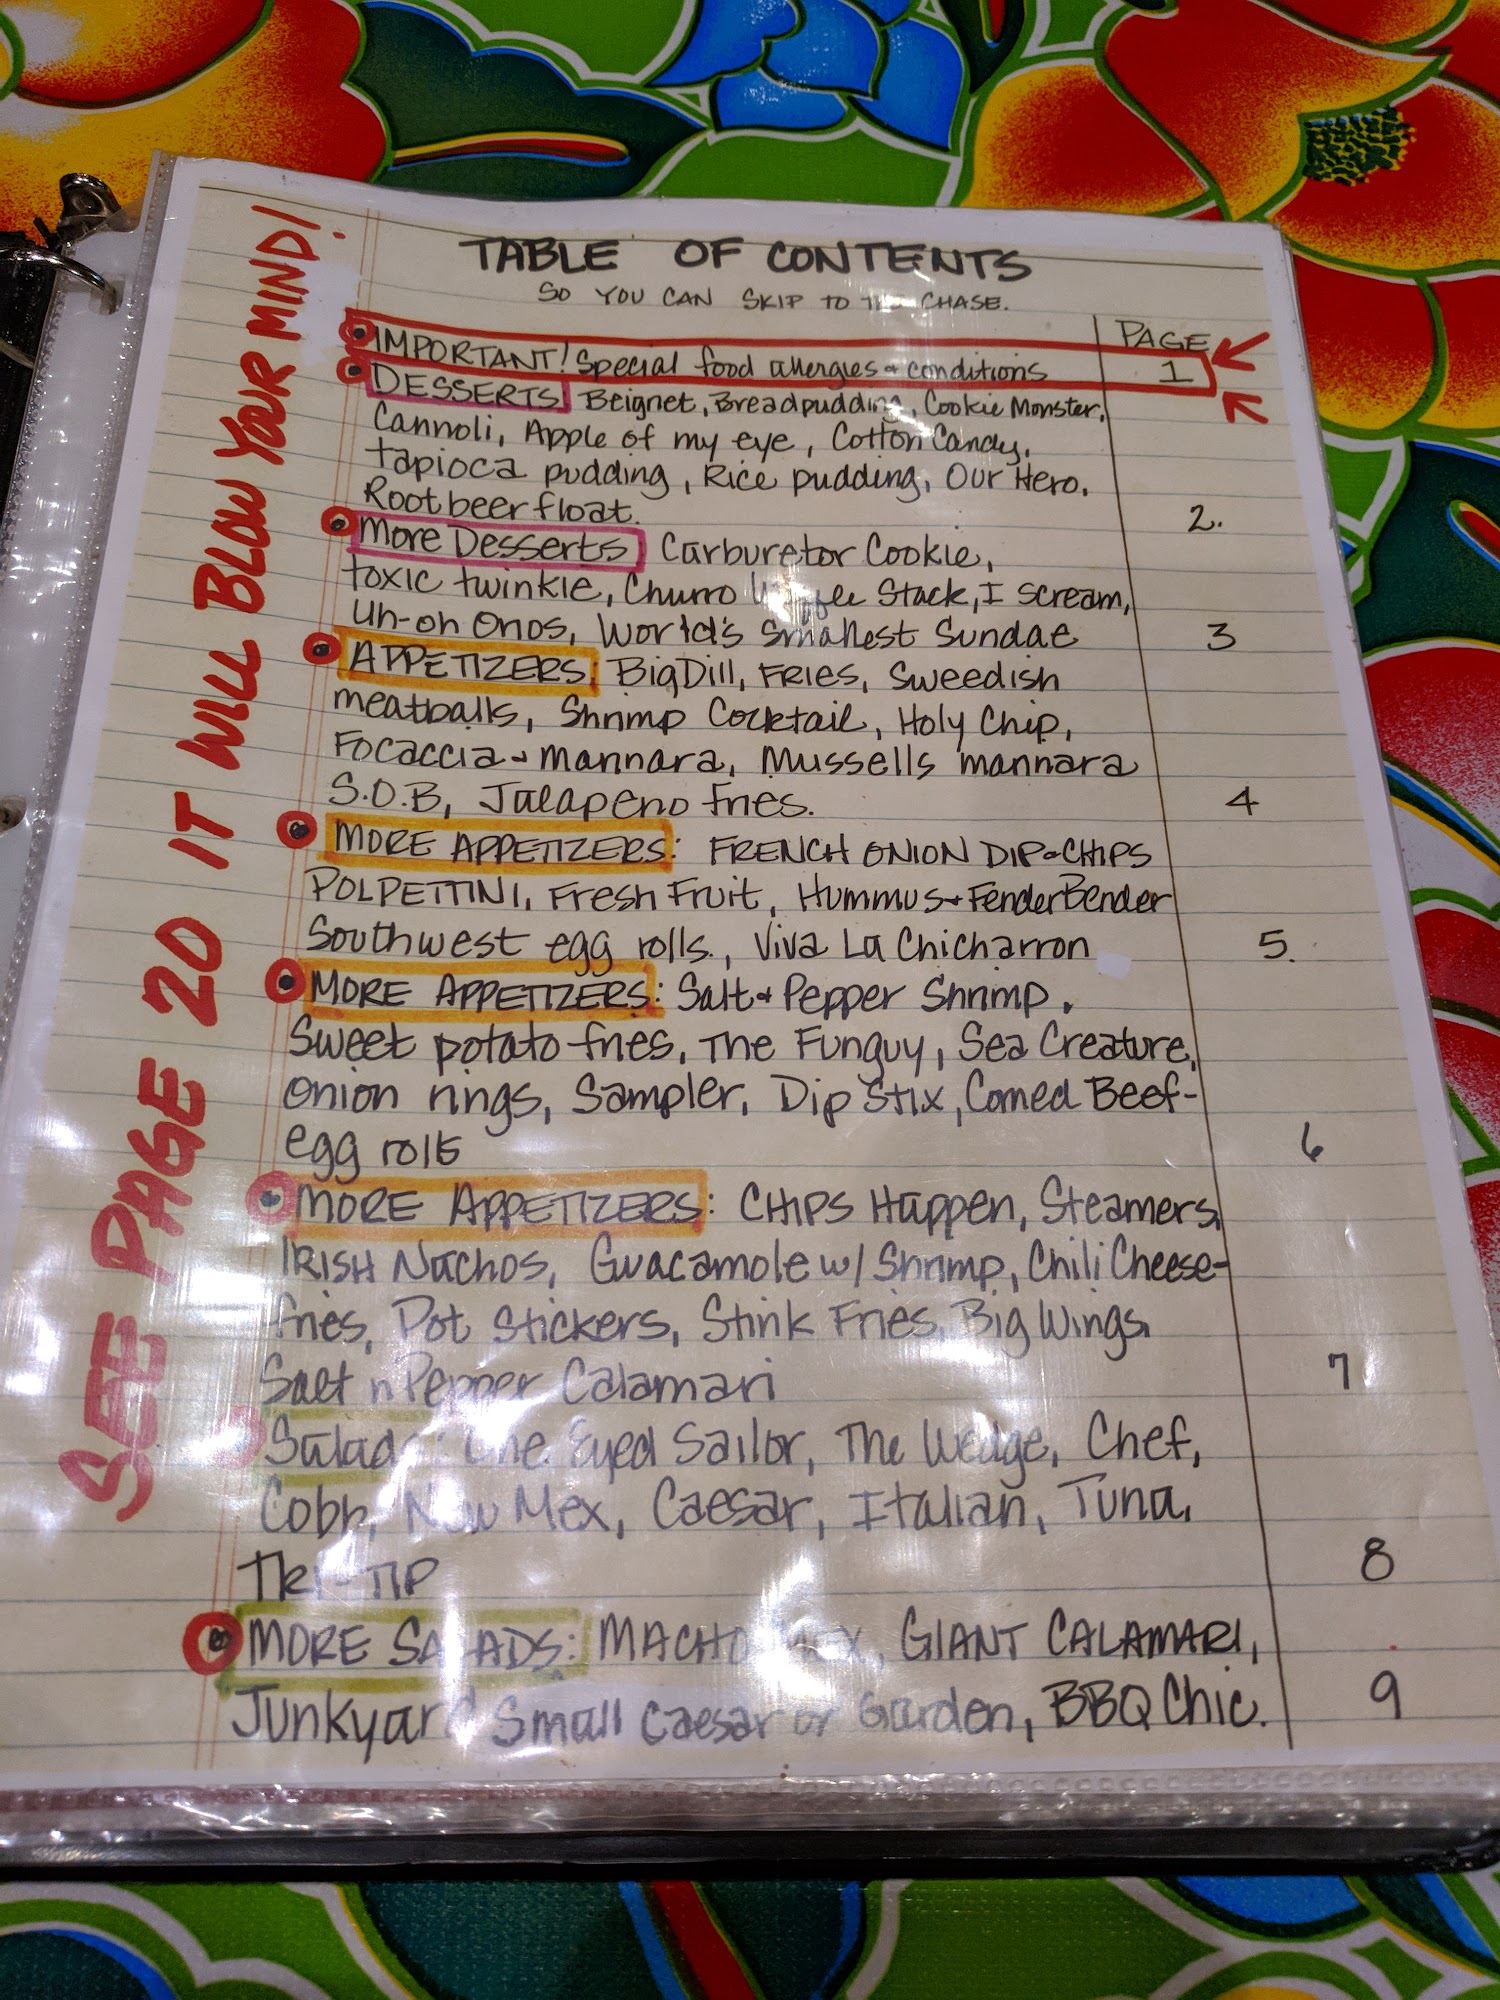 SEE PAGE 20 IT WILL BLOW YOUR MIND!
TABLE OF CONTENTS
SO YOU CAN SKIP TO THE CHASE.
PAGE
IMPORTANT! Special food allergies & conditions 1
DESSERTS Beignet, Breadpudding, Cookie Monster,
Cannoli, Apple of my eye, Cotton Candy,
tapioca pudding, Rice pudding, Our Hero,
Rootbeer float. 2.
More Desserts Carburetor Cookie,
toxic twinkie, Churro Stack, I scream,
Uh-oh Oh-os, World's Smallest Sundae 3
APPETIZERS: Big Dill, FRIES, Sweedish
meatballs, Shrimp Cocktail, Holy Chip,
Focaccia & mannara, Mussells mannara
S.O.B, Jalapeno fries. 4
MORE APPETIZERS: FRENCH ONION DIP & CHIPS
POLPETTINI, Fresh Fruit, Hummus & FenderBender
Southwest egg rolls, Viva La Chicharron 5.
MORE APPETIZERS: Salt & Pepper Shrimp,
Sweet potato fries, The Funguy, Sea Creature,
Onion rings, Sampler, Dip Stix, Corned Beef-
egg rolls 6
MORE APPETIZERS: CHIPS Happen, Steamers,
IRISH Nachos, Guacamole w/ Shrimp, Chili Cheese-
fries, Pot Stickers, Stink Fries, Big Wings,
Salt n Pepper Calamari 7
Salads: One Eyed Sailor, The Wedge, Chef,
Cobb, New Mex, Caesar, Italian, Tuna,
TRI-TIP 8
MORE SALADS: MACHO MEX, GIANT CALAMARI,
Junkyard Small Caesar or Garden, BBQ Chic. 9